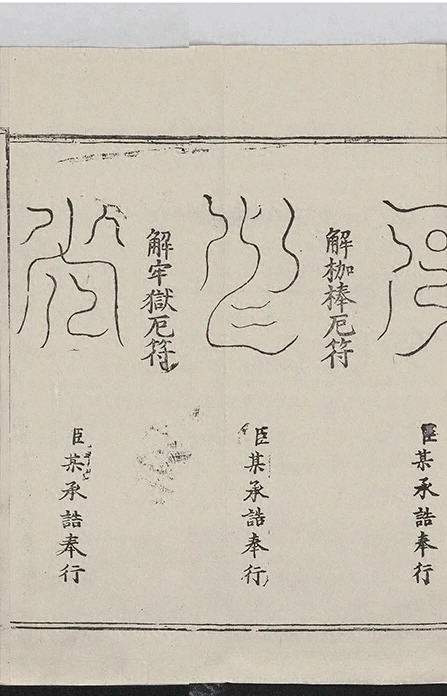 臣某承誥奉行
解枷棒厄符
臣某承誥奉行
解牢獄厄符
臣某承誥奉行